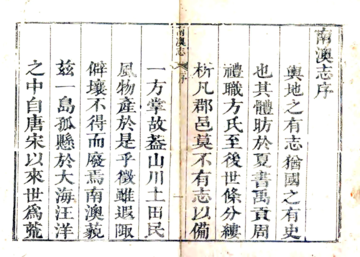 南澳志序
輿地之有志猶國之有史
也其體昉於夏書禹貢周
禮職方氏至後世條分縷
析凡郡邑莫不有志以備
一方掌故葢山川土田民
風物產於是乎徵雖遐陬
僻壤不得而廢焉南澳藐
茲一島孤懸於大海汪洋
之中自唐宋以來世爲荒
南澳志
序